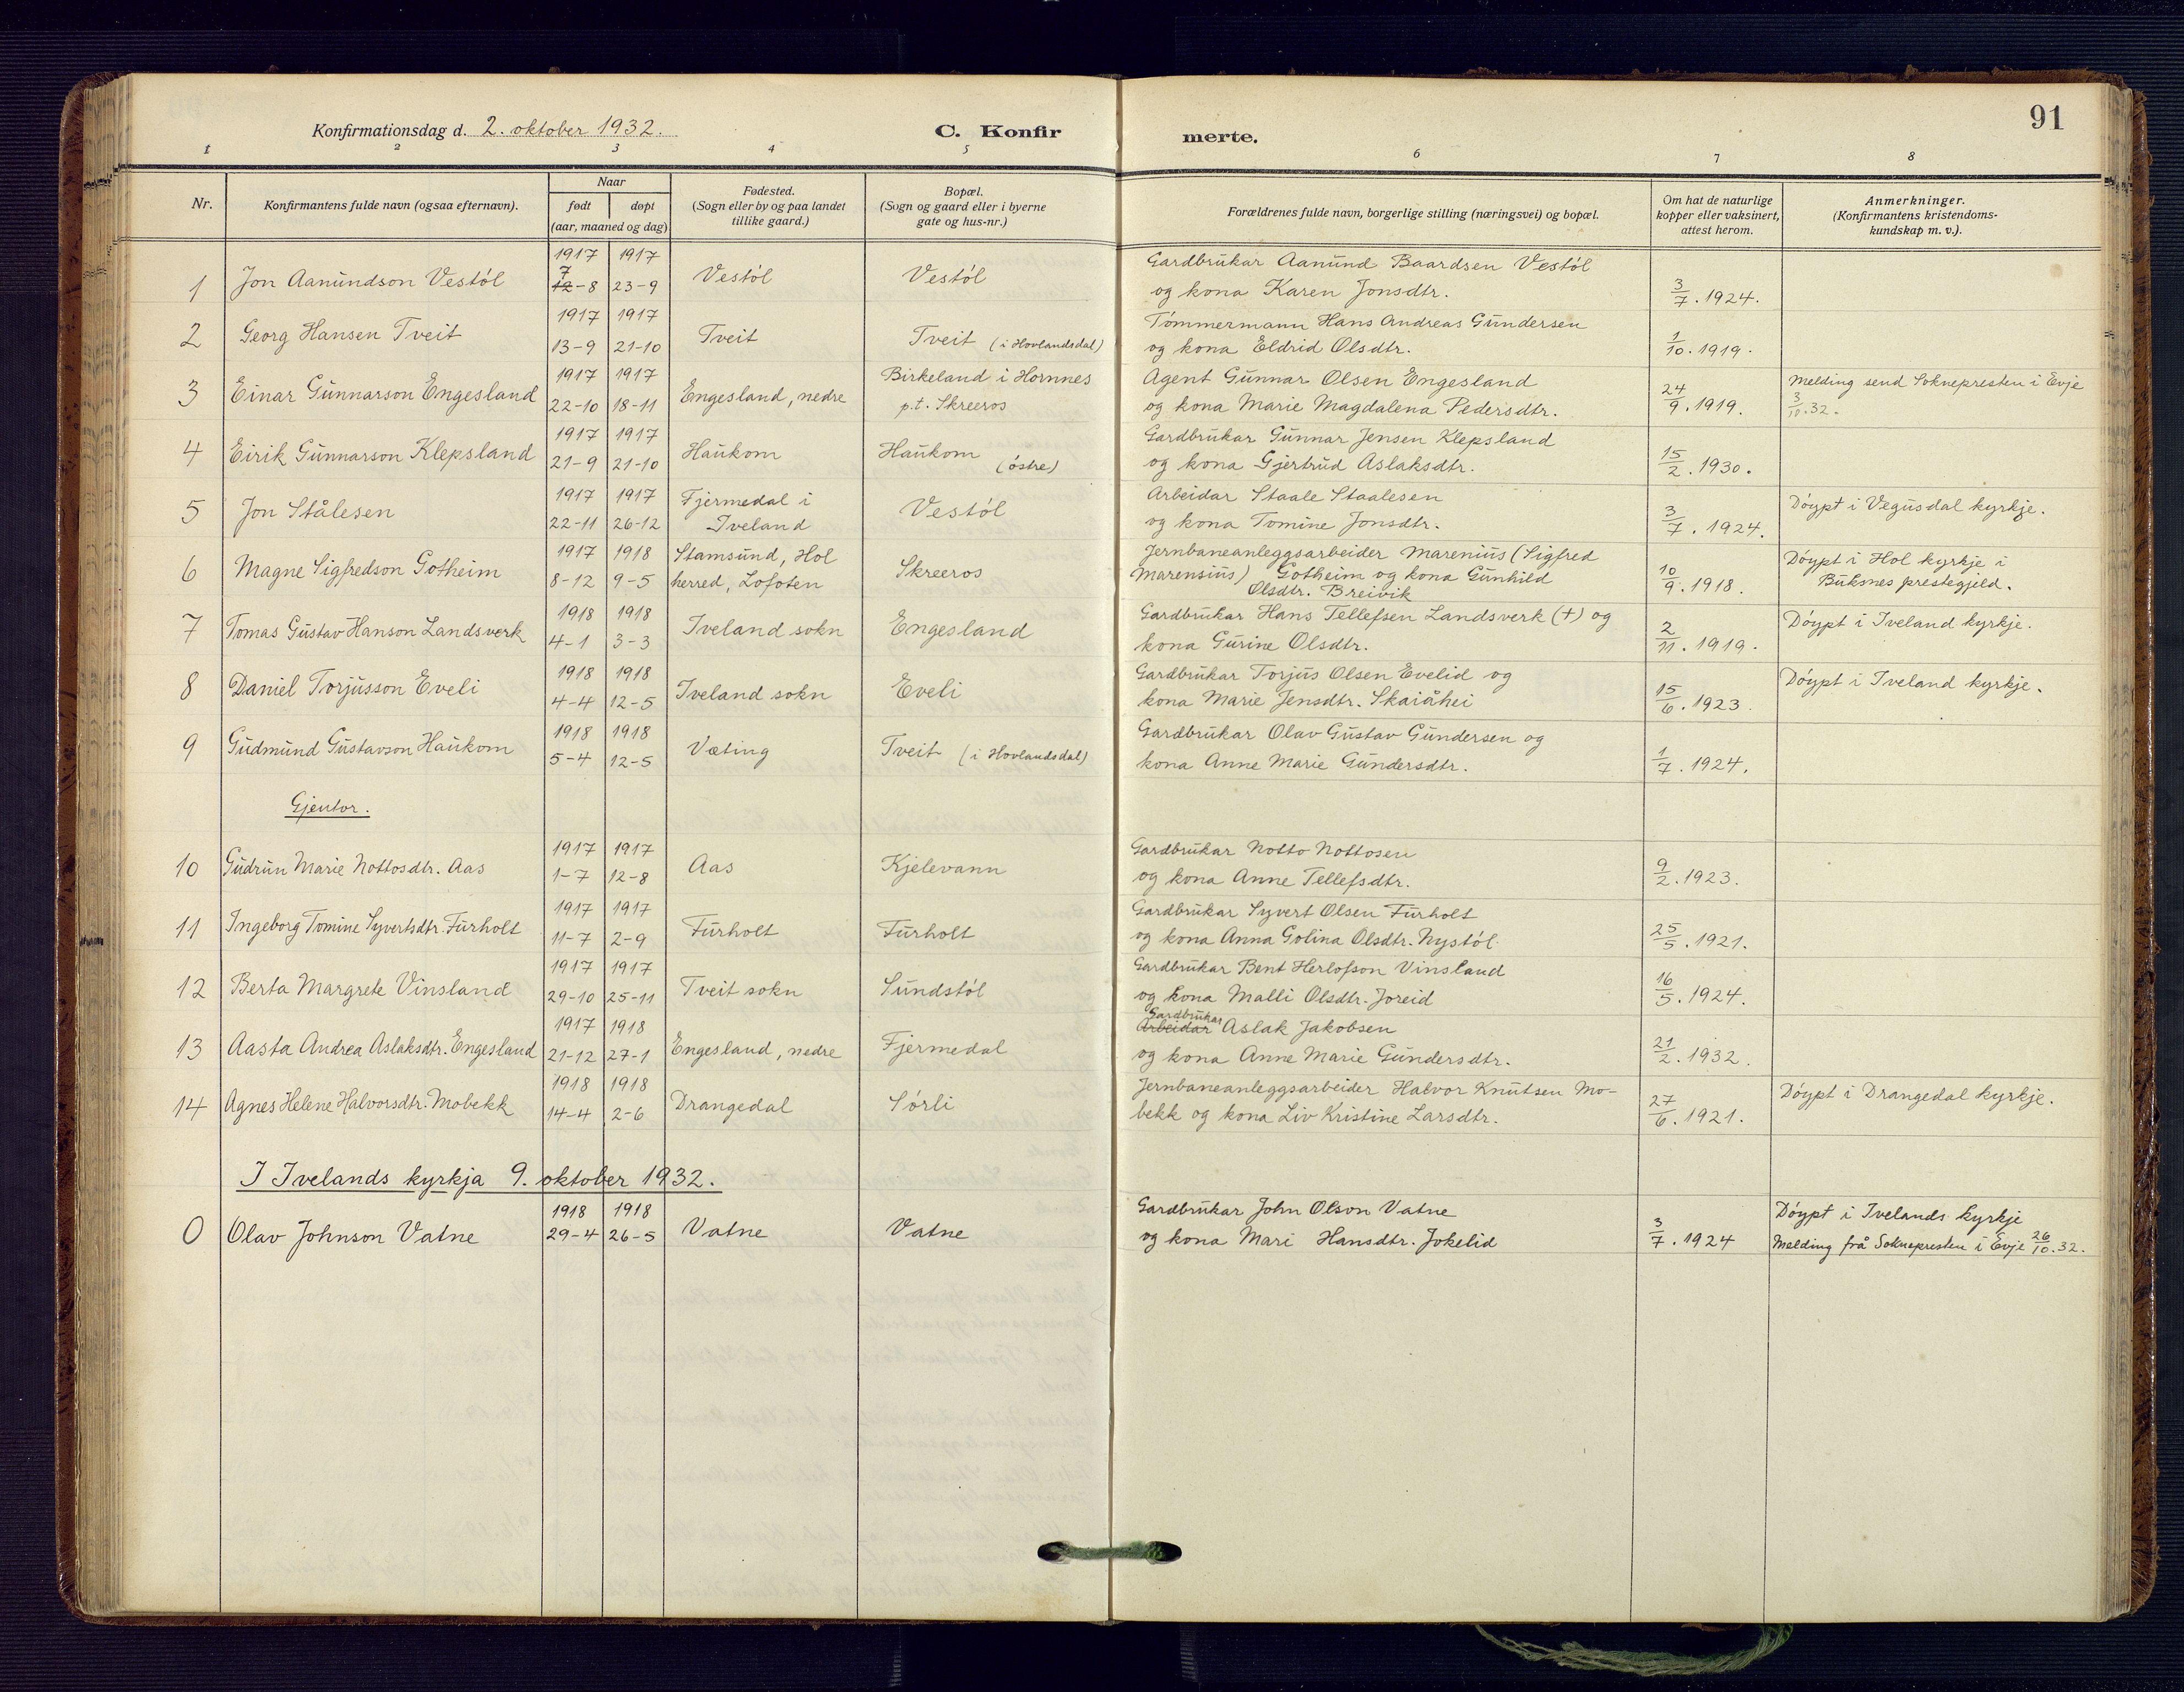 91
Konfirmationsdag d. 2. oktober 1932.
C. Konfirmerte.
1 2 3 4 5 6 7 8
Nr.
Konfirmantens fulde navn (ogsaa efternavn).
Naar
født døpt
(aar, maaned og dag)
Fødested.
(Sogn eller by og paa landet
tillike gaard.)
Bopæl.
(Sogn og gaard eller i byerne
gate og hus-nr.)
Forældrenes fulde navn, borgerlige stilling (næringsvei) og bopæl.
Om hat de naturlige
kopper eller vaksinert,
attest herom.
Anmerkninger.
(Konfirmantens kristendoms-
kundskap m. v.).
1917 1917 Gardbrukar Aanund Baardsen Vestøl
7
1 Jon Aanundson Vestøl 12-8 23-9 Vestøl Vestøl og kona Karen Jonsdtr. 3/7. 1924.
1917 1917 Tømmermann Hans Andreas Gundersen
2 Georg Hansen Tveit 13-9 21-10 Tveit Tveit (i Hovlandsdal) og kona Eldrid Olsdtr. 1/10. 1919.
1917 1917 Birkeland i Hornnes Agent Gunnar Olsen Engesland Melding send Soknepresten i Evje
3 Einar Gunnarson Engesland 22-10 18-11 Engesland, nedre p.t. Skreeros og kona Marie Magdalena Pedersdtr. 24/9. 1919. 3/10.32.
1917 1917 Gardbrukar Gunnar Jensen Klepsland
4 Eirik Gunnarson Klepsland 21-9 21-10 Haukom Haukom (østre) og kona Gjertrud Aslaksdtr. 15/2. 1930.
1917 1917 Fjermedal i Arbeidar Staale Staalesen Døypt i Vegusdal kyrkje.
5 Jon Stålesen 22-11 26-12 Iveland Vestøl og kona Tomine Jonsdtr. 3/7. 1924.
1917 1918 Stamsund, Hol Jernbaneanleggsarbeider Marenius (Sigfred Døypt i Hol kyrkje i
6 Magne Sigfredson Gotheim 8-12 9-5 herred, Lofoten Skreeros Marensius) Gotheim og kona Gunhild 10/9. 1918. Buksnes prestegjeld.
Olsdtr. Breivik
1918 1918 Gardbrukar Hans Tellefsen Landsverk (+) og Døypt i Iveland kyrkje.
7 Tomas Gustav Hanson Landsverk 4-1 3-3 Iveland sokn Engesland kona Gurine Olsdtr. 2/11. 1919.
1918 1918 Gardbrukar Torjus Olsen Evelid og Døypt i Iveland kyrkje.
8 Daniel Torjusson Eveli 4-4 12-5 Iveland sokn Eveli kona Marie Jensdtr. Skaiåhei 15/6. 1923.
1918 1918 Gardbrukar Olav Gustav Gundersen og
9 Gudmund Gustavson Haukom 5-4 12-5 Væting Tveit (i Hovlandsdal) kona Anne Marie Gundersdtr. 1/7. 1924.
Gjentor.
1917 1917 Gardbrukar Notto Nottosen
10 Gudrun Marie Nottosdtr. Aas 1-7 12-8 Aas Kjelevann og kona Anne Tellefsdtr. 9/2. 1923.
1917 1917 Gardbrukar Syvert Olsen Furholt
11 Ingeborg Tomine Syvertsdtr. Furholt 11-7 2-9 Furholt Furholt og kona Anna Golina Olsdtr. Nystøl 25/5. 1921.
1917 1917 Gardbrukar Bent Herlofson Vinsland
12 Berta Margrete Vinsland 29-10 25-11 Tveit sokn Sundstøl og kona Malli Olsdtr. Joreid 16/5. 1924.
Gardbrukar
1917 1918 Arbeidar Aslak Jakobsen
13 Aasta Andrea Aslaksdtr. Engesland 21-12 27-1 Engesland, nedre Fjermedal og kona Anne Marie Gundersdtr. 21/2. 1932.
1918 1918 Jernbaneanleggsarbeider Halvor Knutsen Mo- Døypt i Drangedal kyrkje.
14 Agnes Helene Halvorsdtr. Mobekk 14-4 2-6 Drangedal Sørli bekk og kona Liv Kristine Larsdtr. 27/6. 1921.
I Ivelands kyrkja 9. oktober 1932.
1918 1918 Gardbrukar John Olson Vatne Døypt i Ivelands kyrkje
0 Olav Johnson Vatne 29-4 26-5 Vatne Vatne og kona Mari Hansdtr. Jokelid 3/7. 1924 Melding frå Soknepresten i Evje 26/10.32.